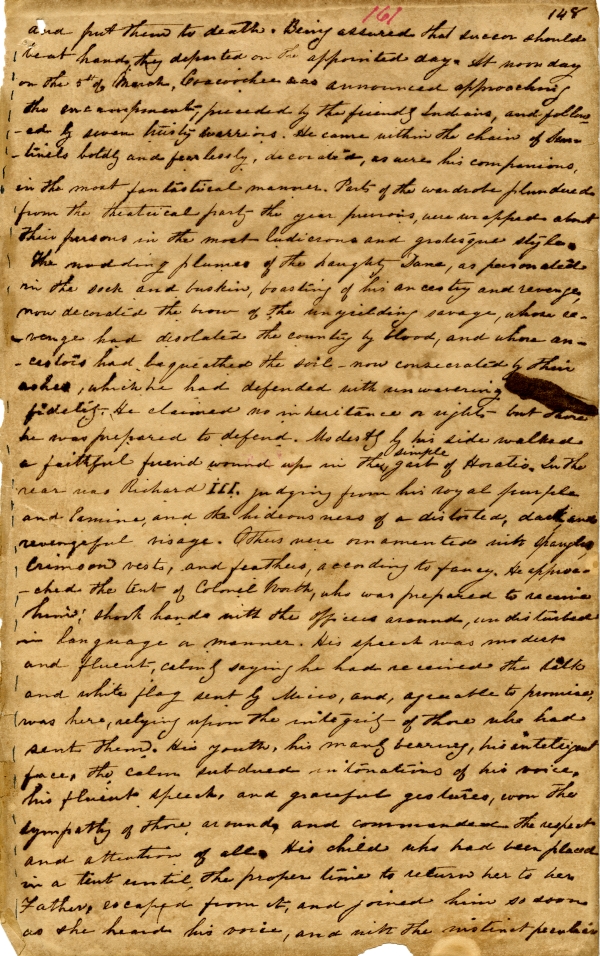 161
148
and put them to death. Being assured that succor should
be at hand, they departed on the appointed day. At noon day
on the 5th of March, Coacoochee was announced approaching
the encampment, preceded by the friendly Indians, and follow-
-ed by seven trusty warriors. He came within the chain of Sen-
-tinels boldly and fearlessly, decorated, as were his companions,
in the most fantastical manner. Parts of the wardrobe plundered
from the theatrical party the year previous, were wrapped about
their persons in the most ludicrous and grotesque style.
The nodding plumes of the haughty Dane, as personated
in the sock and buskin, boasting of his ancestry and revenge,
now decorated the brow of the unyielding savage, whose re-
-venge had disolated the country by blood, and whose an-
-cestors had bequeathed the soil - now consecrated by their
ashes, which he had defended with unwavering
fidelity. He claimed no inheritance or rights but those
he was prepared to defend. Modestly by his side walked
a faithful friend wound up in the simple garb of Horatio. In the
rear was Richard III. judging from his royal purple
and Ermine, and the hideousness of a distorted, dark and
revengeful visage. Others were ornamented with spangles
Crimson vests, and feathers, according to fancy. He approa-
-ched the tent of Colonel Worth, who was prepared to receive
him; shook hands with the officers around, undisturbed
in language or manner. His speech was modest
and fluent, calmly saying he had received the talk
and white flag sent by Micco, and, agreeable to promise,
was here, relying upon the integrity of those who had
sent them. His youth, his manly bearing, his intelligent
face, the calm subdued intonations of his voice,
his fluent speech, and graceful gestures, won the
sympathy of those around, and commanded the respect
and attention of all. His child who had been placed
in a tent until the proper time to return her to her
Father, escaped from it, and joined him so soon
as she heard his voice, and with the instinct peculiar